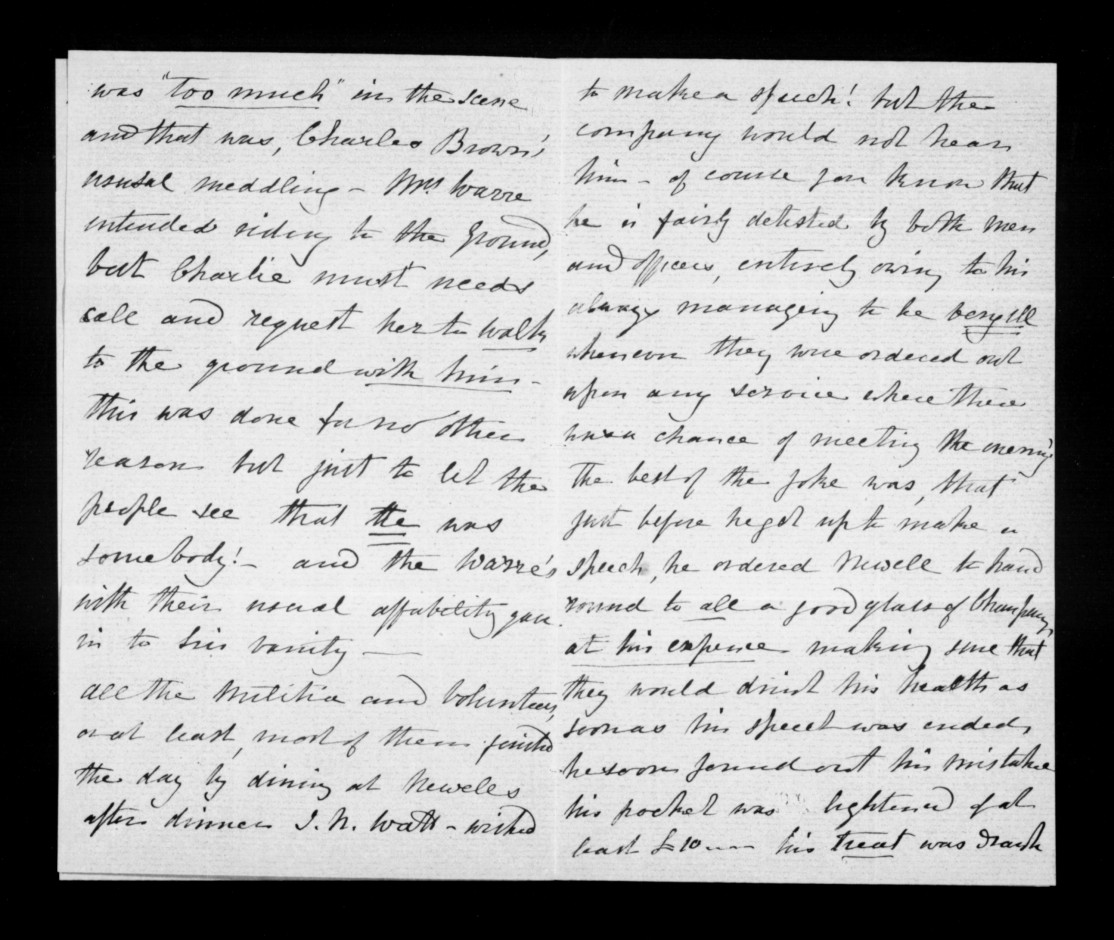 was "too much" in the scene
and that was, Charles Brown's
usual meddling - Mrs. Warre
intended riding to the ground,
but Charlie must needs
call and request her to walk
to the ground with him -
this was done for no other
reason but just to let the
people see that he was
somebody! - and the Warre's
with their usual affability gave
in to his vanity —
all the Militia and Volunteers,
or at least, most of them finished
the day by dining at Newells
after dinner J. N. Watt - wished
to make a speech! but the
company would not hear
him - of course you know that
he is fairly detested by both men
and officers, entirely owing to his
always managing to be very ill
whenever they were ordered out
upon any service where there
was a chance of meeting the enemy
the best of the joke was, that
just before he got up to make a
speech, he ordered Newell to hand
round to all a good glass of Champagne,
at his expense making sure that
they would drink his health as
soon as his speech was ended,
he soon found out his mistake
his pocket was lightened of at
least £10 his treat was drank